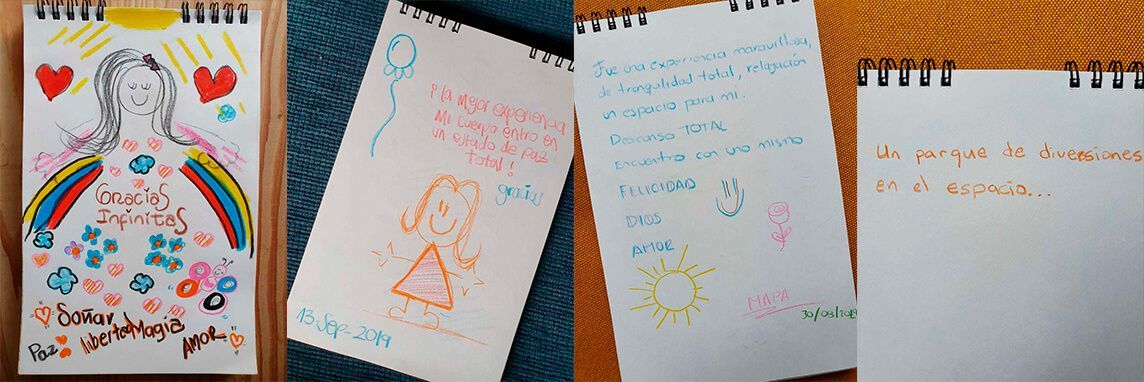 Gracias
Infinitas
Soñar
libertad Magia
Paz
AMOR
¡ la Mejor experiencia
Mi cuerpo entro en
un estado de Paz
total !
gracias
13 Sep-2019
Fue una experiencia maravillosa,
de tranquilidad total, relajación
un espacio para mi.
Descanso TOTAL
Encuentro con uno mismo
FELICIDAD
DIOS
AMOR
MAPA
Un parque de diversiones
en el espacio...